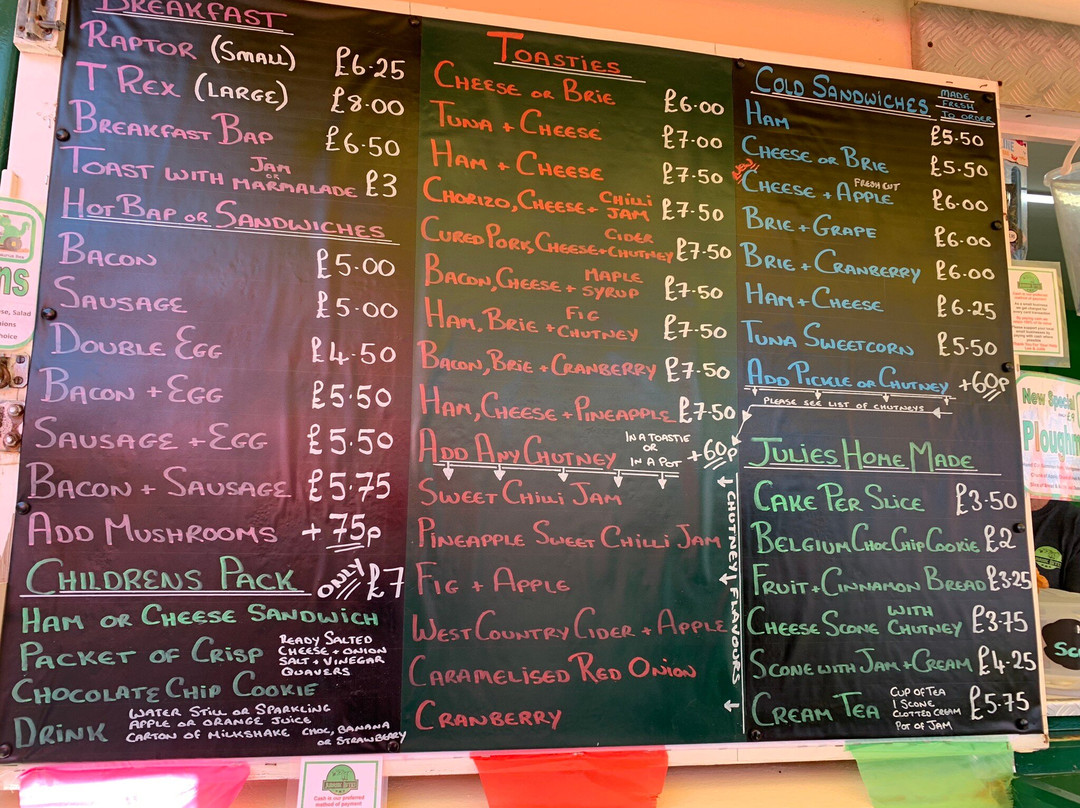 BREAKFAST
RAPTOR (SMALL) £6.25
T REX (LARGE) £8.00
BREAKFAST BAP £6.50
TOAST WITH JAM OR MARMALADE £3
HOT BAP OR SANDWICHES
BACON £5.00
SAUSAGE £5.00
DOUBLE EGG £4.50
BACON + EGG £5.50
SAUSAGE + EGG £5.50
BACON + SAUSAGE £5.75
ADD MUSHROOMS + 75p
CHILDRENS PACK ONLY £7
HAM OR CHEESE SANDWICH
PACKET OF CRISP READY SALTED
CHEESE + ONION
SALT + VINEGAR
QUAVERS
CHOCOLATE CHIP COOKIE
DRINK WATER STILL OR SPARKLING
APPLE OR ORANGE JUICE
CARTON OF MILKSHAKE CHOC, BANANA
OR STRAWBERRY
TOASTIES
CHEESE OR BRIE £6.00
TUNA + CHEESE £7.00
HAM + CHEESE £7.50
CHORIZO, CHEESE + CHILLI JAM £7.50
CURED PORK, CHEESE + CIDER CHUTNEY £7.50
BACON, CHEESE + MAPLE SYRUP £7.50
HAM, BRIE + FIG CHUTNEY £7.50
BACON, BRIE + CRANBERRY £7.50
HAM, CHEESE + PINEAPPLE £7.50
ADD ANY CHUTNEY IN A TOASTIE OR IN A POT +60p
SWEET CHILLI JAM
PINEAPPLE SWEET CHILLI JAM
FIG + APPLE
WEST COUNTRY CIDER + APPLE
CARAMELISED RED ONION
CRANBERRY
CHUTNEY FLAVOURS
COLD SANDWICHES MADE FRESH TO ORDER
HAM £5.50
CHEESE OR BRIE £5.50
CHEESE + FRESH CUT APPLE £6.00
BRIE + GRAPE £6.00
BRIE + CRANBERRY £6.00
HAM + CHEESE £6.25
TUNA SWEETCORN £5.50
ADD PICKLE OR CHUTNEY +60p
PLEASE SEE LIST OF CHUTNEYS
JULIES HOME MADE
CAKE PER SLICE £3.50
BELGIUM CHOC CHIP COOKIE £2
FRUIT + CINNAMON BREAD £3.25
CHEESE SCONE WITH CHUTNEY £3.75
SCONE WITH JAM + CREAM £4.25
CREAM TEA CUP OF TEA
1 SCONE
CLOTTED CREAM
POT OF JAM £5.75
New Special
Cash is our preferred
method of payment